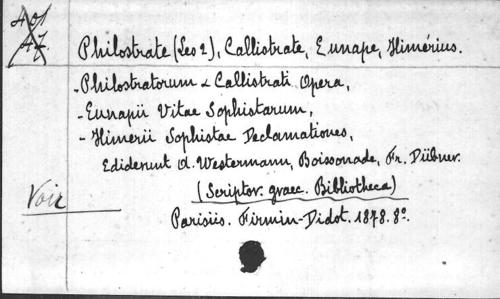 401
A7.
Philostrate (Les 2), Callistrate, Eunape, Himérius.
- Philostratorum & Callistrati Opera,
- Eunapii Vitae Sophistarum,
- Himerii Sophistae Declamationes,
Ediderunt A. Westermann, Boissonade, Fr. Dübner.
(Scriptor. graec. Bibliotheca)
Voir
Parisiis. Firmin-Didot. 1878. 8º.